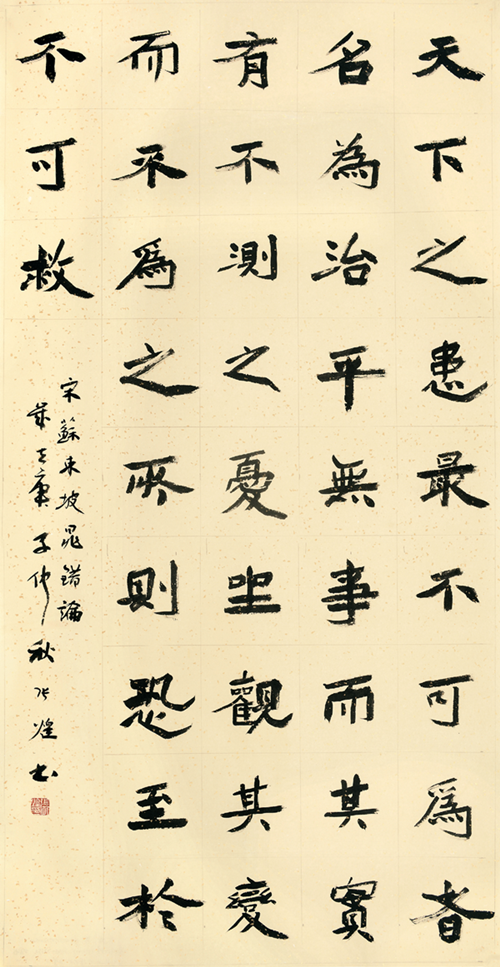 天下之患最不可爲者
名為治平無事而其實
有不測之憂坐觀其變
而不爲之所則恐至於
不可救
宋蘇東坡晁錯論
歲在庚子仲秋張書